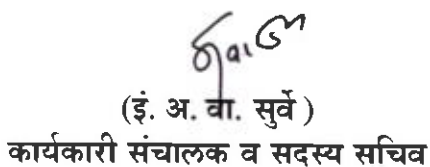 (इं. अ. वा. सुर्वे )
कार्यकारी संचालक व सदस्य सचिव